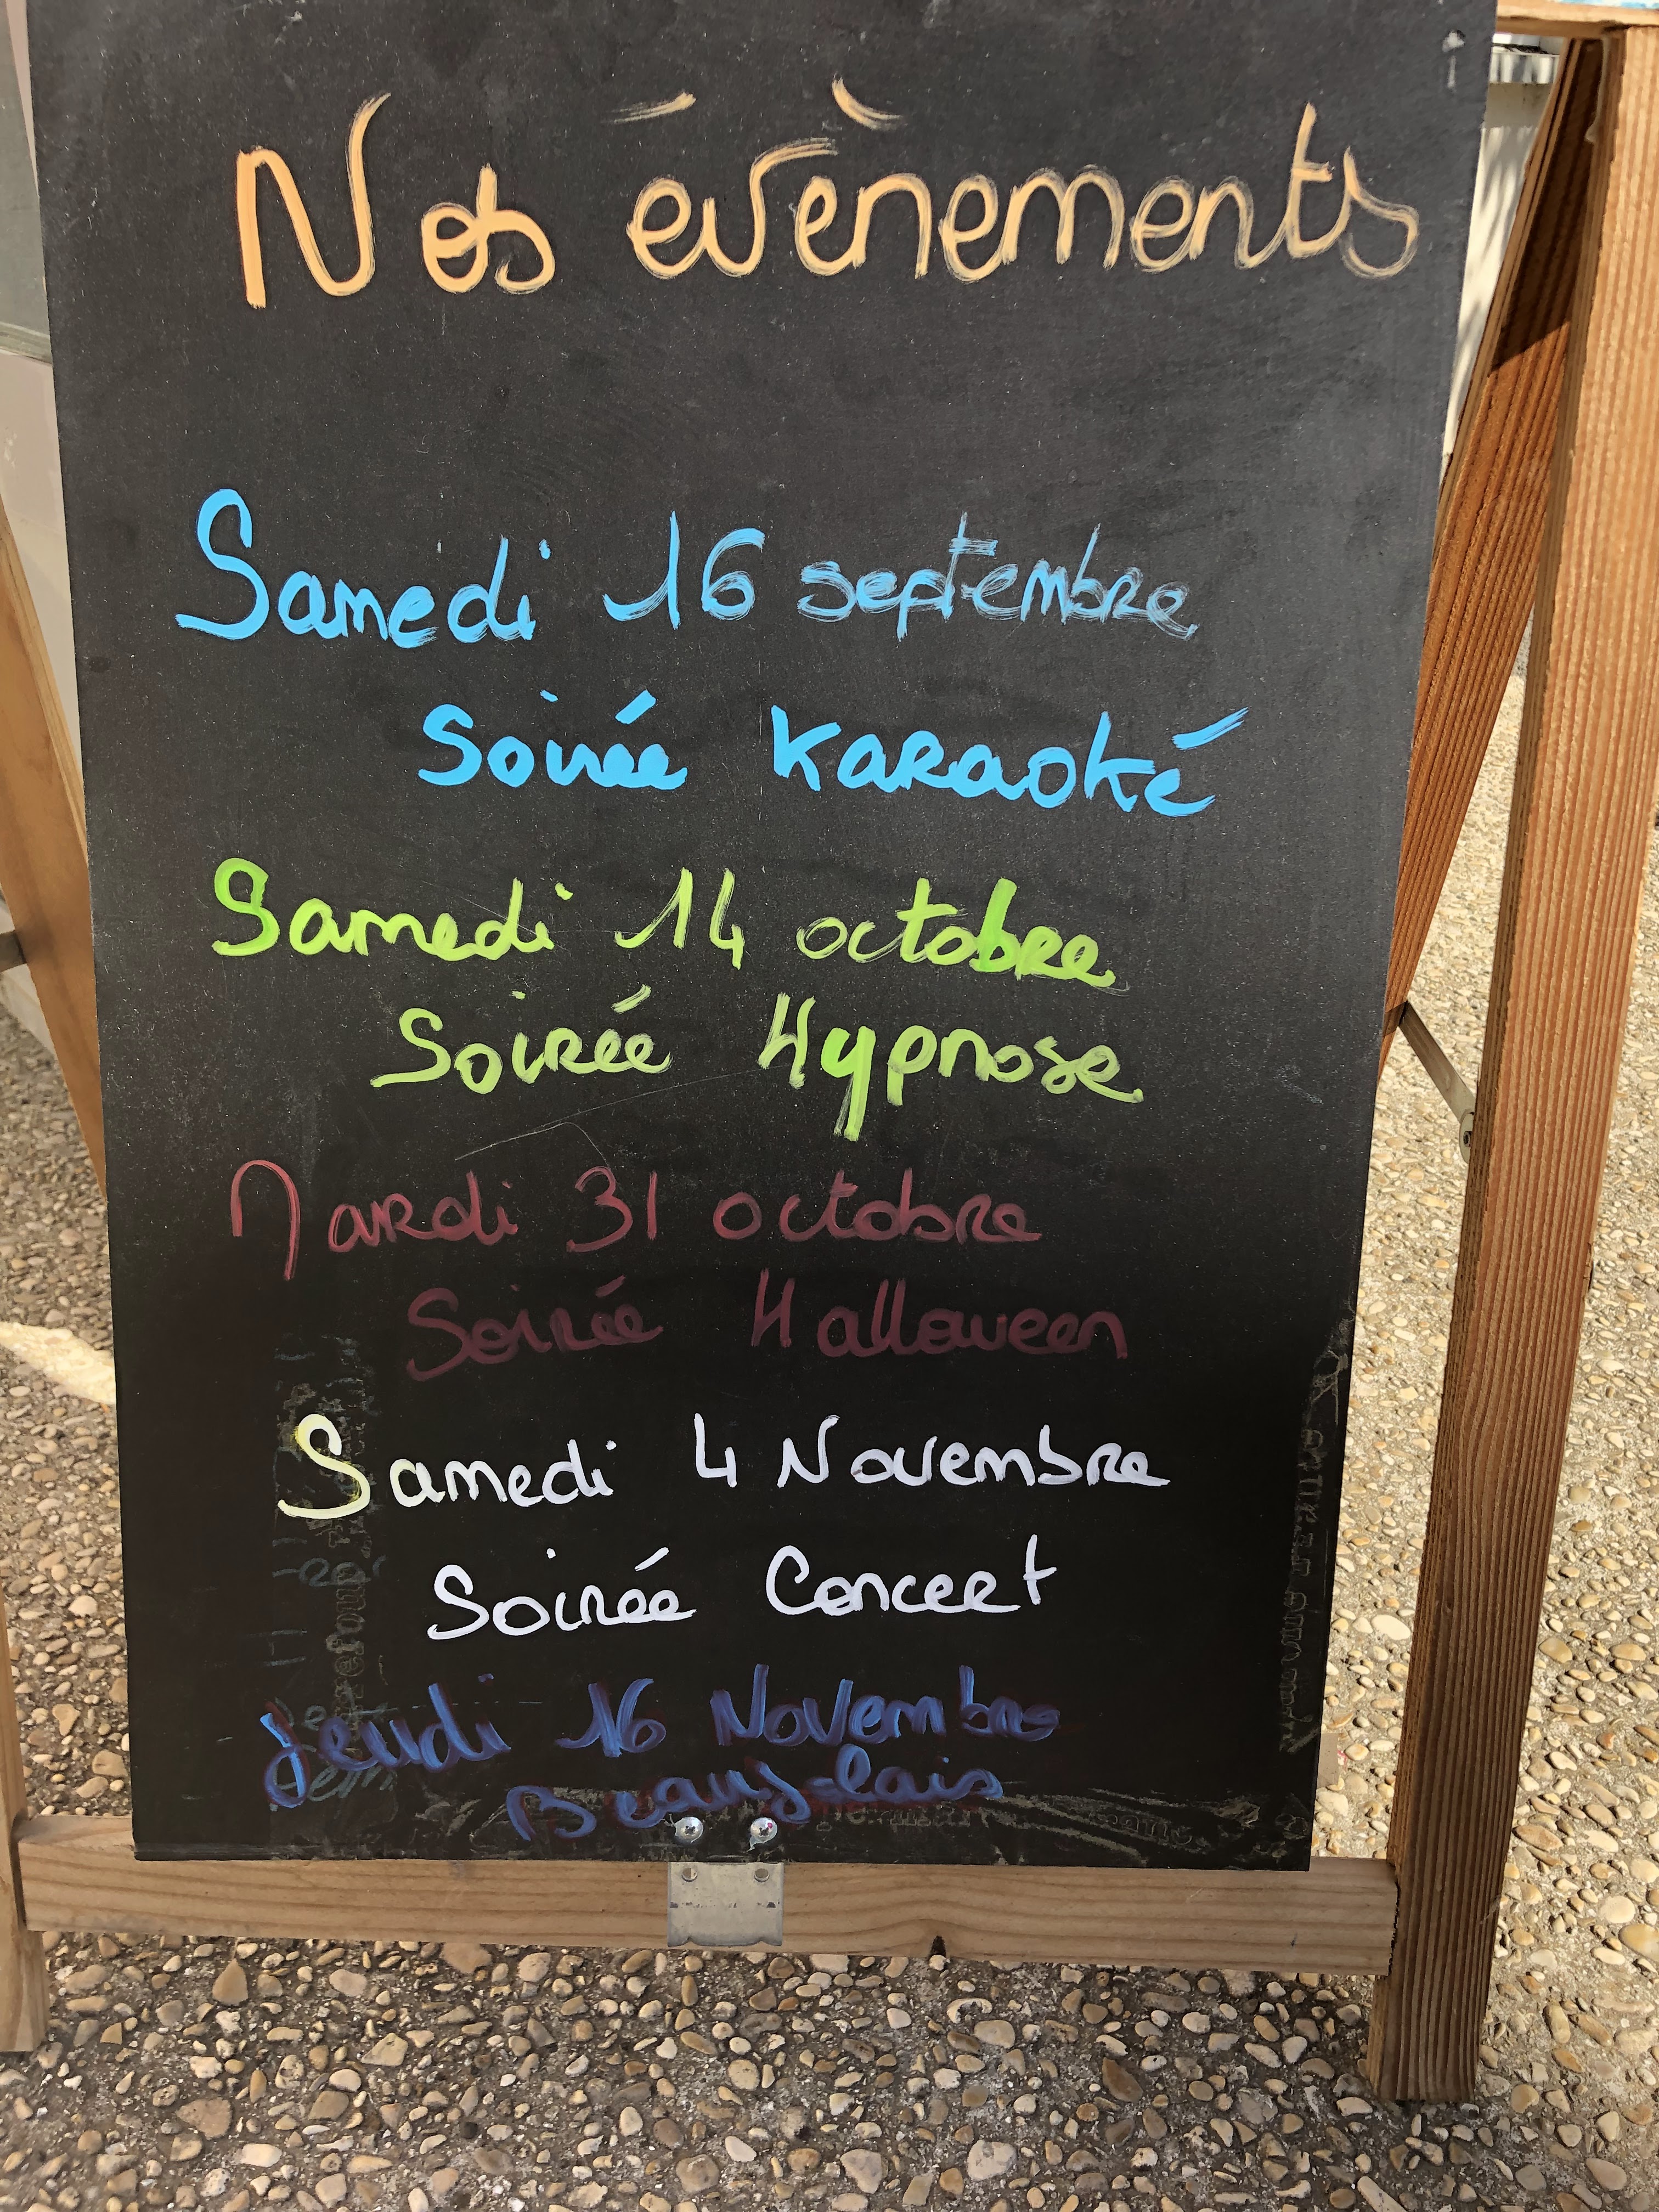 Nos évènements
Samedi 16 septembre
Soirée Karaoké
Samedi 14 octobre
Soirée Hypnose
Mardi 31 octobre
Soirée Halloween
Samedi 4 Novembre
Soirée Concert
Jeudi 16 Novembre
Beaujolais